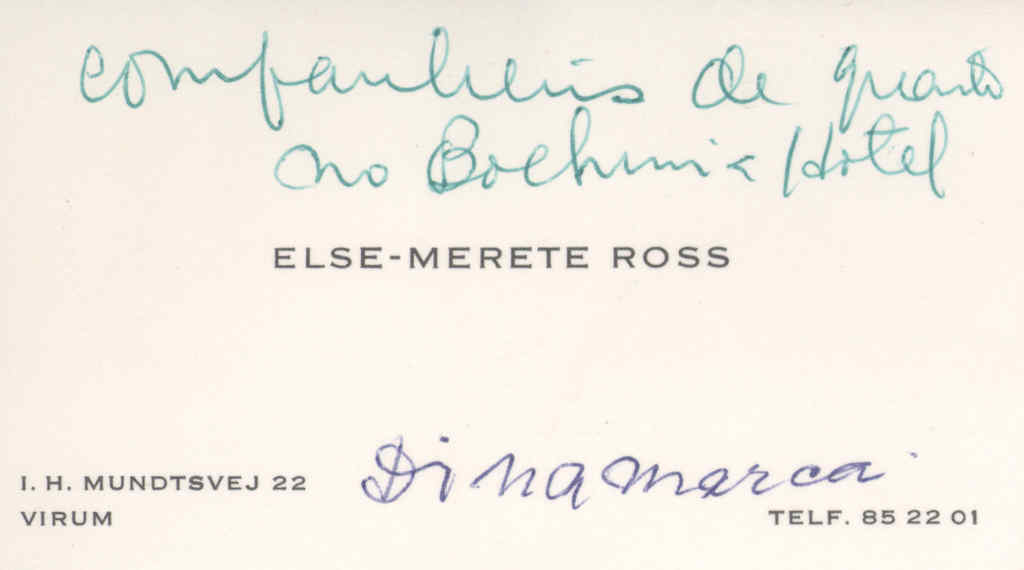 companheiros de quarto
no Bochmia Hotel
ELSE-MERETE ROSS
Dinamarca
I. H. MUNDTSVEJ 22
VIRUM
TELF. 85 22 01